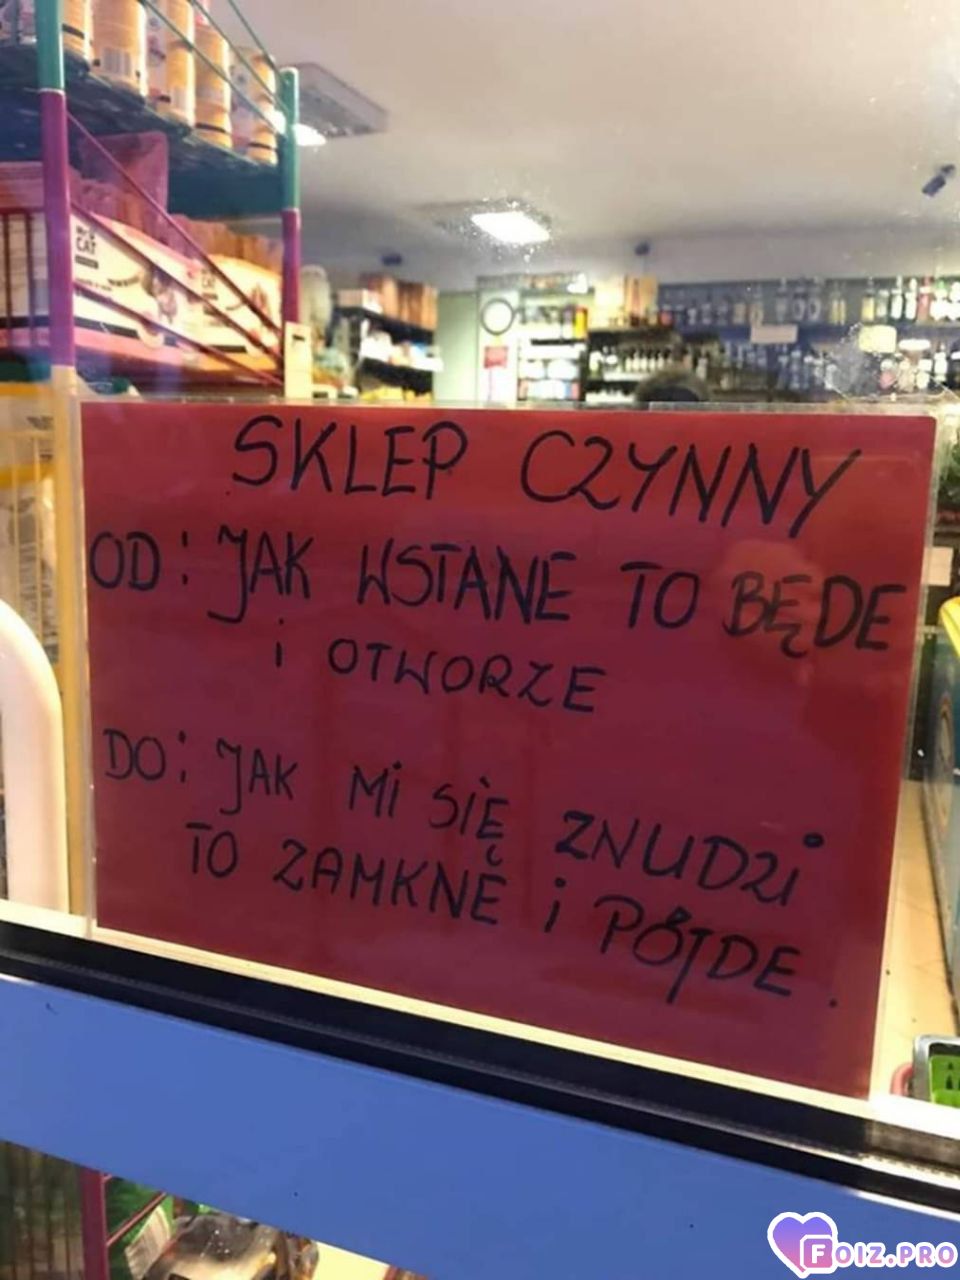 CAT
SKLEP CZYNNY
OD: JAK WSTANE TO BĘDE
i OTWORZE
DO: JAK MI SIĘ ZNUDZI
TO ZAMKNĘ i PÓJDE.
FOIZ.PRO